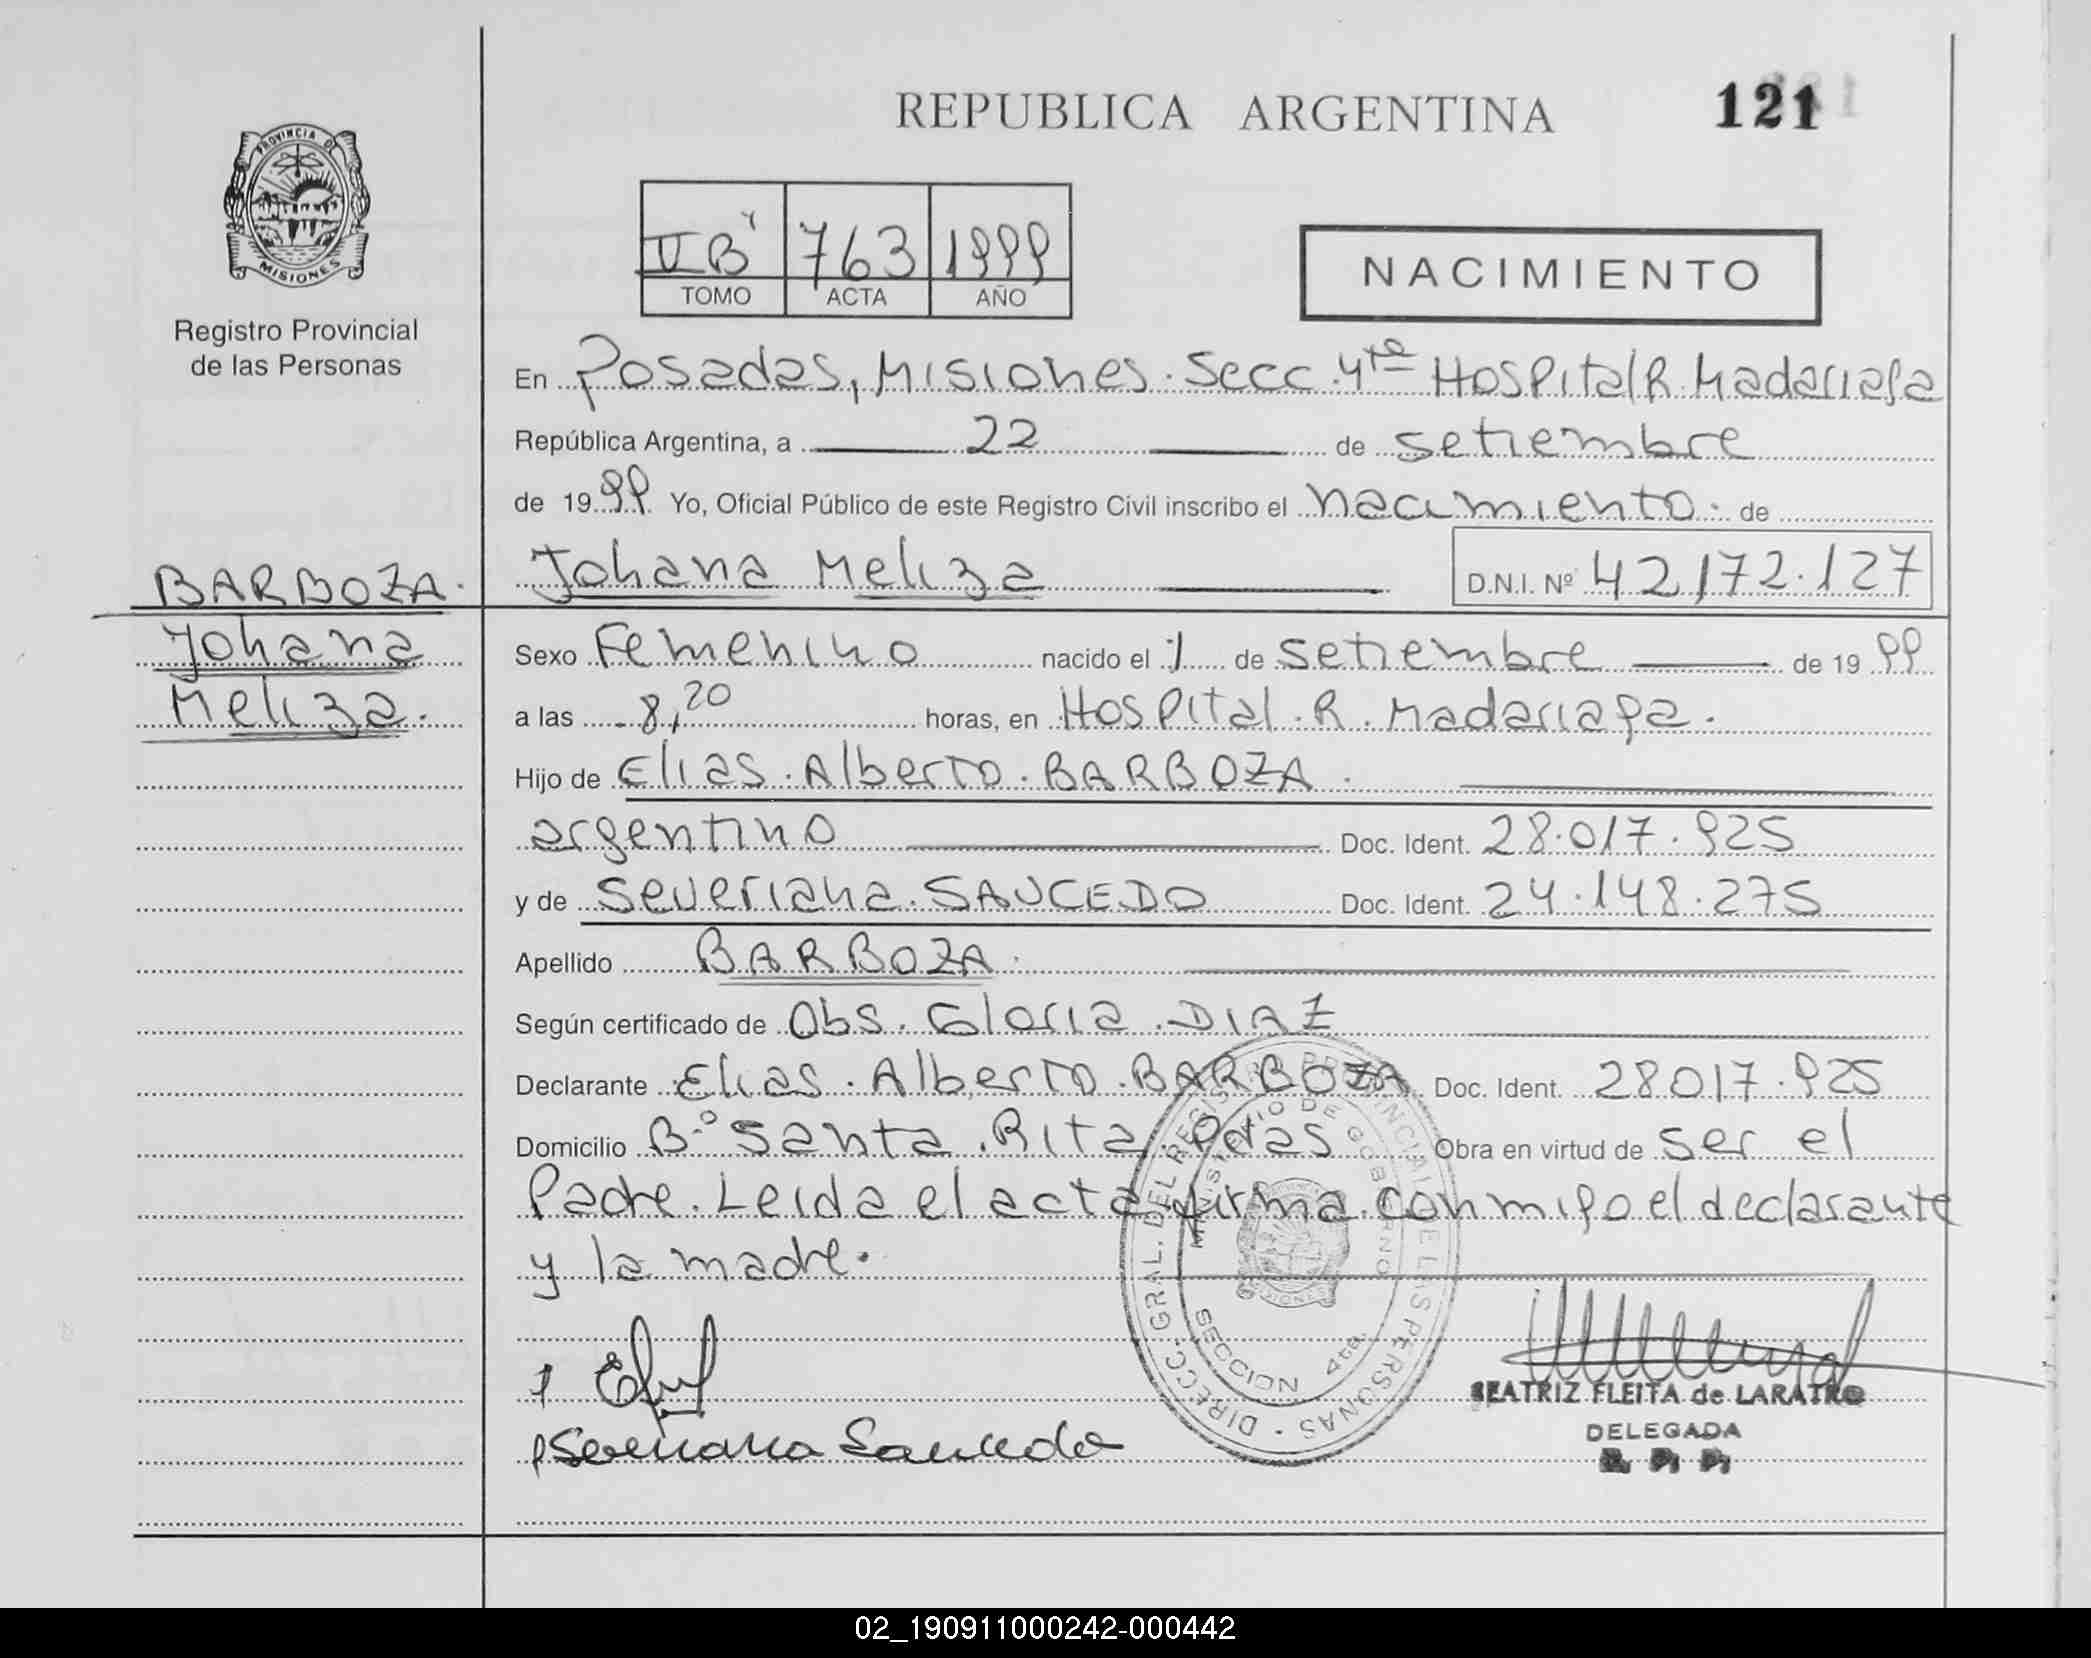 REPUBLICA ARGENTINA
121
PROVINCIA DE
MISIONES
Registro Provincial
de las Personas
II Bˢ 763 1999
TOMO ACTA AÑO
NACIMIENTO
En Posadas, Misiones. Secc. 4ta Hospital R. Madariaga
República Argentina, a 22 de setiembre
de 1999 Yo, Oficial Público de este Registro Civil inscribo el nacimiento. de
BARBOZA.
Johana
Meliza.
Johana Meliza
D.N.I. Nº 42172.127
Sexo Femenino nacido el 1 de setiembre de 1999
a las 8,20 horas, en Hospital. R. Madariaga.
Hijo de Elias. Alberto. BARBOZA.
argentino Doc. Ident. 28.017.925
y de Severiana. SAUCEDO Doc. Ident. 24.148.275
Apellido BARBOZA.
Según certificado de Obs. Gloria. DIAZ
Declarante Elias. Alberto. BARBOZA Doc. Ident. 28017.925
Domicilio Bº Santa. Rita. Pdas Obra en virtud de ser el
Padre. Leida el acta firma conmigo el declarante
y la madre.
DIRECC. GRAL. DEL REGISTRO PROVINCIAL DE LAS PERSONAS
MINISTERIO DE GOBIERNO
MISIONES
SECCION 4ta.
Severiana Saucedo
BEATRIZ FLEITA de LARATRO
DELEGADA
R. P. P.
02_190911000242-000442